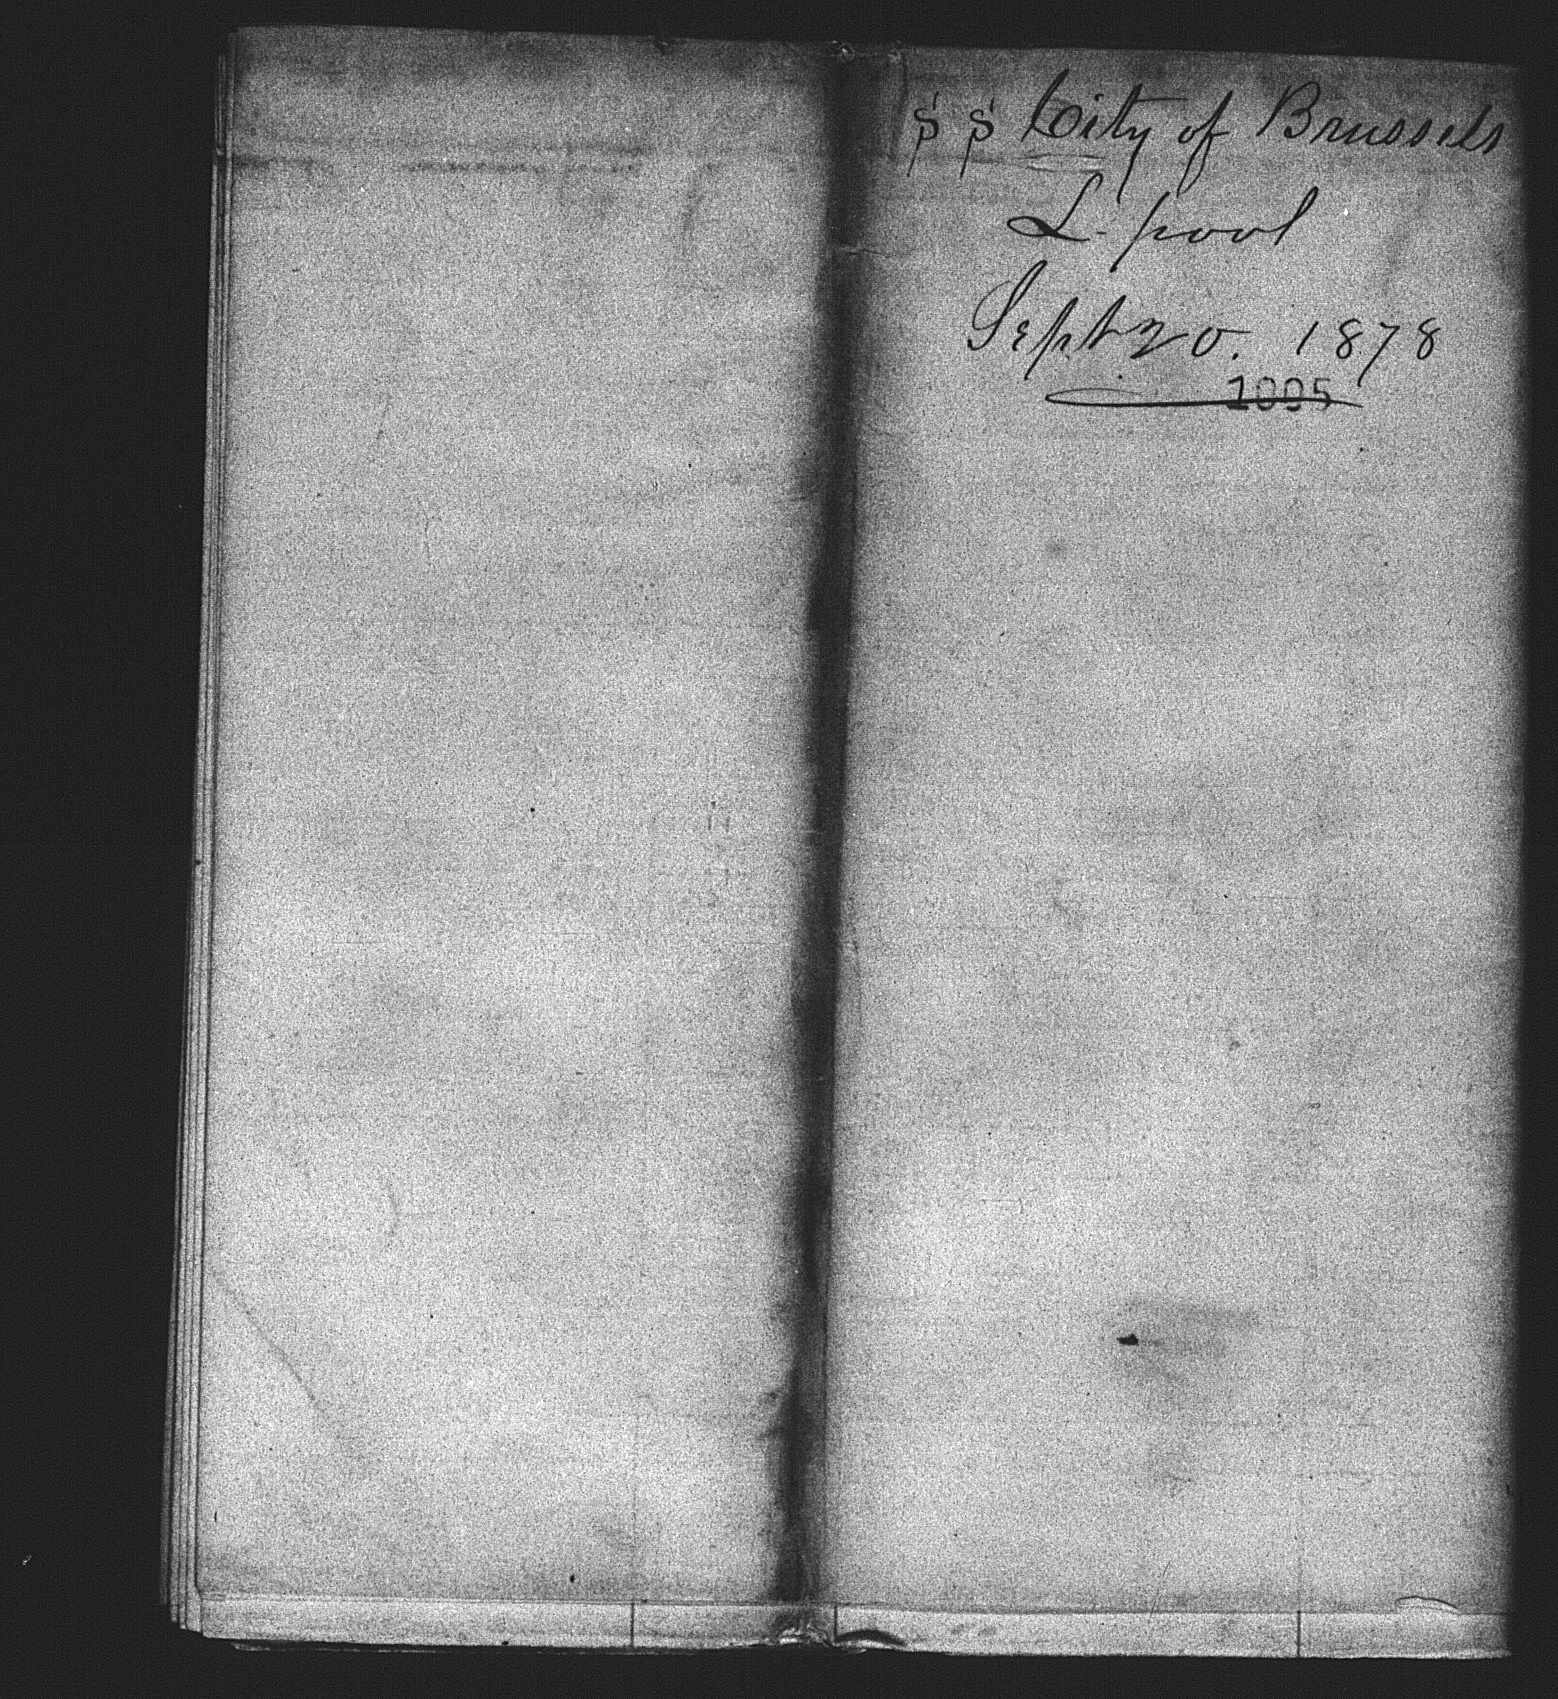 S S City of Brussels
L-pool
Sept 20. 1878
1095